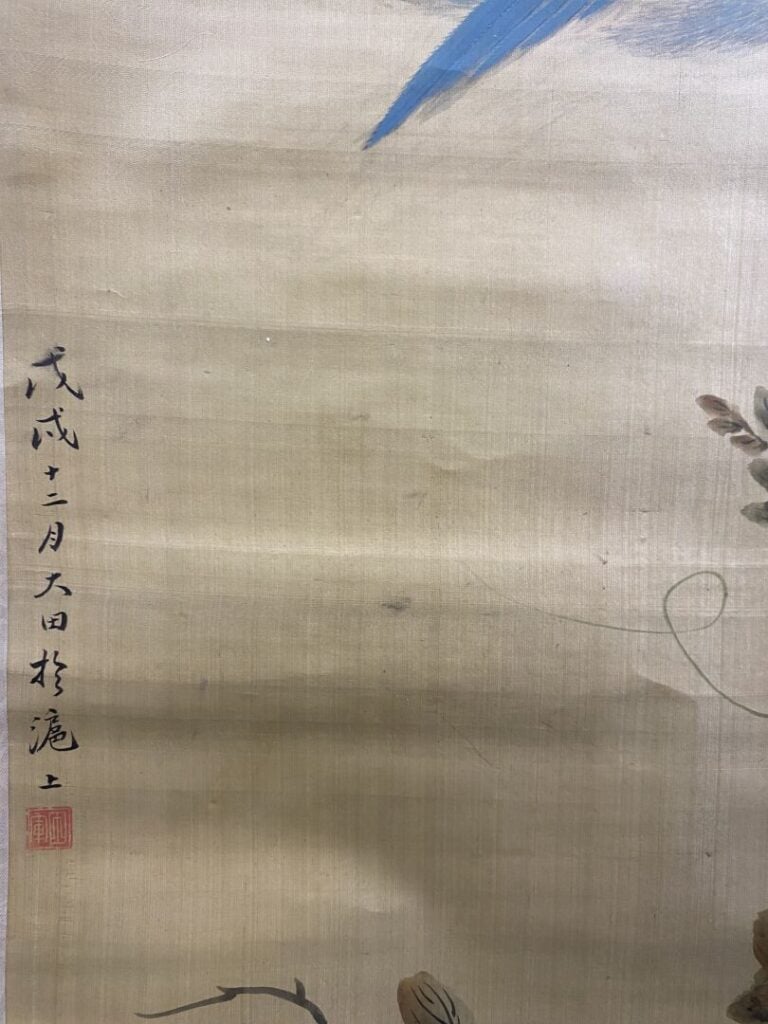 戊戌十二月大田於滬上